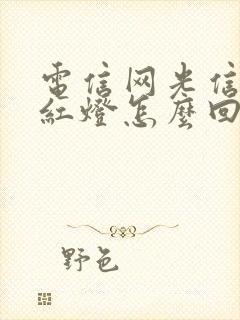 電信网光信
紅燈怎麼回
野色